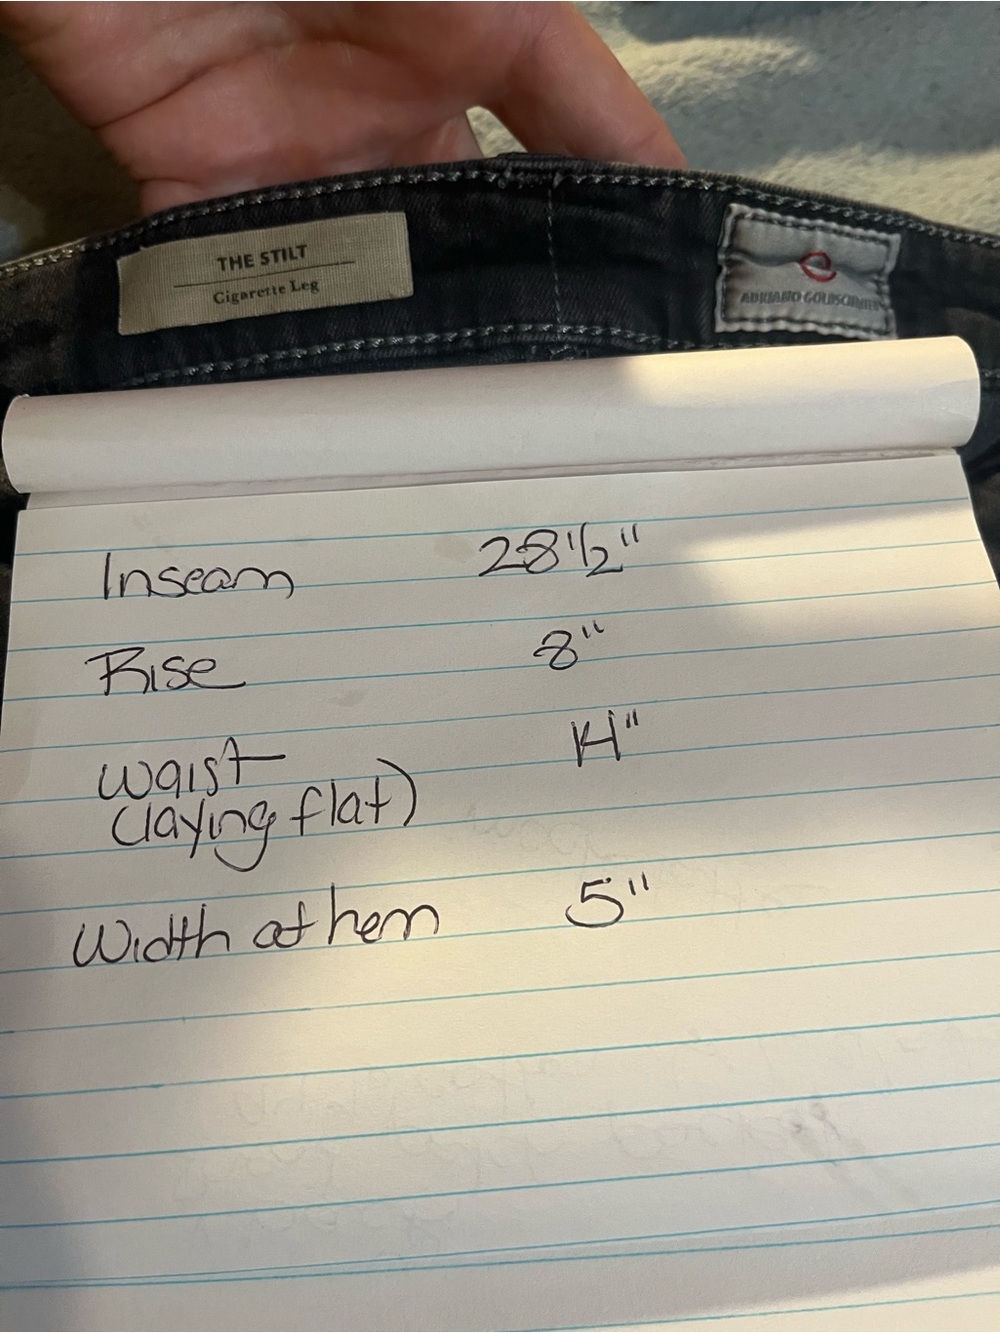 THE STILT
Cigarette Leg
ADRIANO GOLDSCHMIED
Inseam 28 1/2"
Rise 8"
Waist 14"
(laying flat)
Width at hem 5"